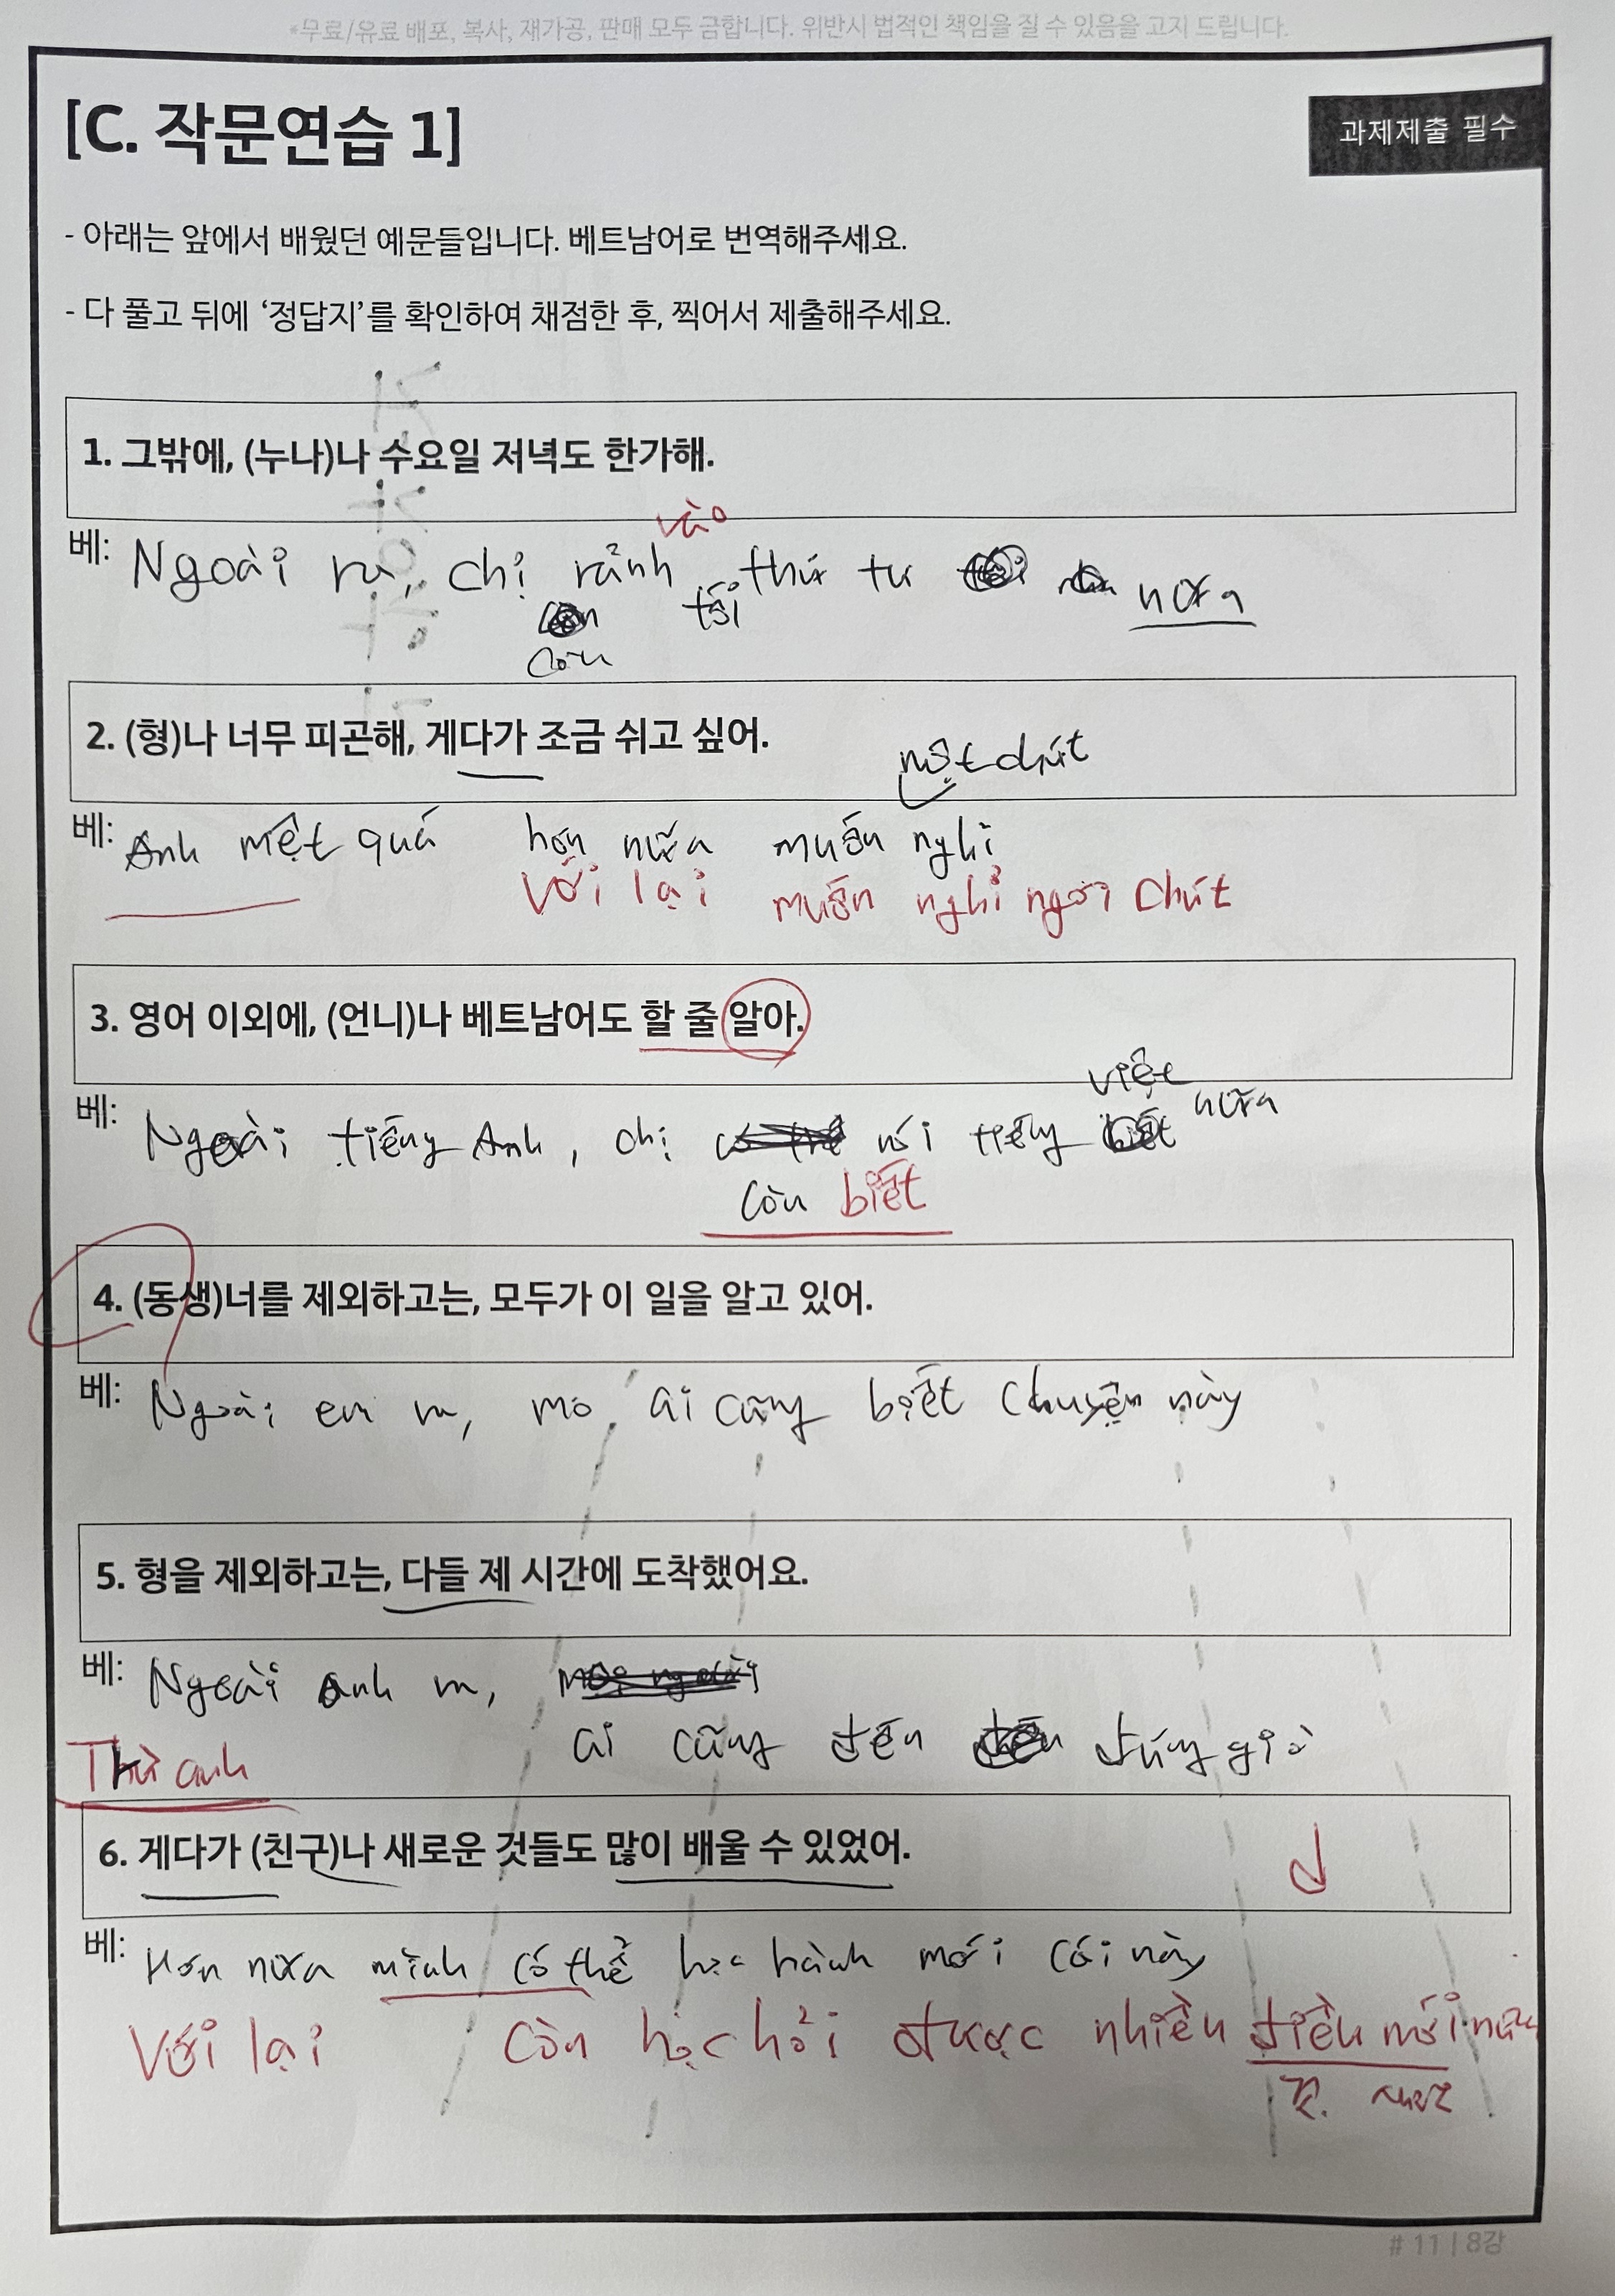 *무료/유료 배포, 복사, 재가공, 판매 모두 금합니다. 위반시 법적인 책임을 질 수 있음을 고지 드립니다.
[C. 작문연습 1]
과제제출 필수
- 아래는 앞에서 배웠던 예문들입니다. 베트남어로 번역해주세요.
- 다 풀고 뒤에 ‘정답지’를 확인하여 채점한 후, 찍어서 제출해주세요.
1. 그밖에, (누나)나 수요일 저녁도 한가해.
vào
베: Ngoài ra, chị rảnh thứ tư nữa
tối
còn
2. (형)나 너무 피곤해, 게다가 조금 쉬고 싶어.
một chút
베: Anh mệt quá hơn nữa muốn nghỉ
Với lại muốn nghỉ ngơi chút
3. 영어 이외에, (언니)나 베트남어도 할 줄 알아.
việt
베: Ngoài tiếng Anh, chị nói tiếng nữa
còn biết
4. (동생)너를 제외하고는, 모두가 이 일을 알고 있어.
베: Ngoài em ra, ai cũng biết chuyện này
5. 형을 제외하고는, 다들 제 시간에 도착했어요.
베: Ngoài anh ra,
ai cũng đến đúng giờ
Trừ anh
6. 게다가 (친구)나 새로운 것들도 많이 배울 수 있었어.
베: Hơn nữa mình có thể học hành mới cái này
Với lại còn học hỏi được nhiều điều mới nữa
# 11 | 8강